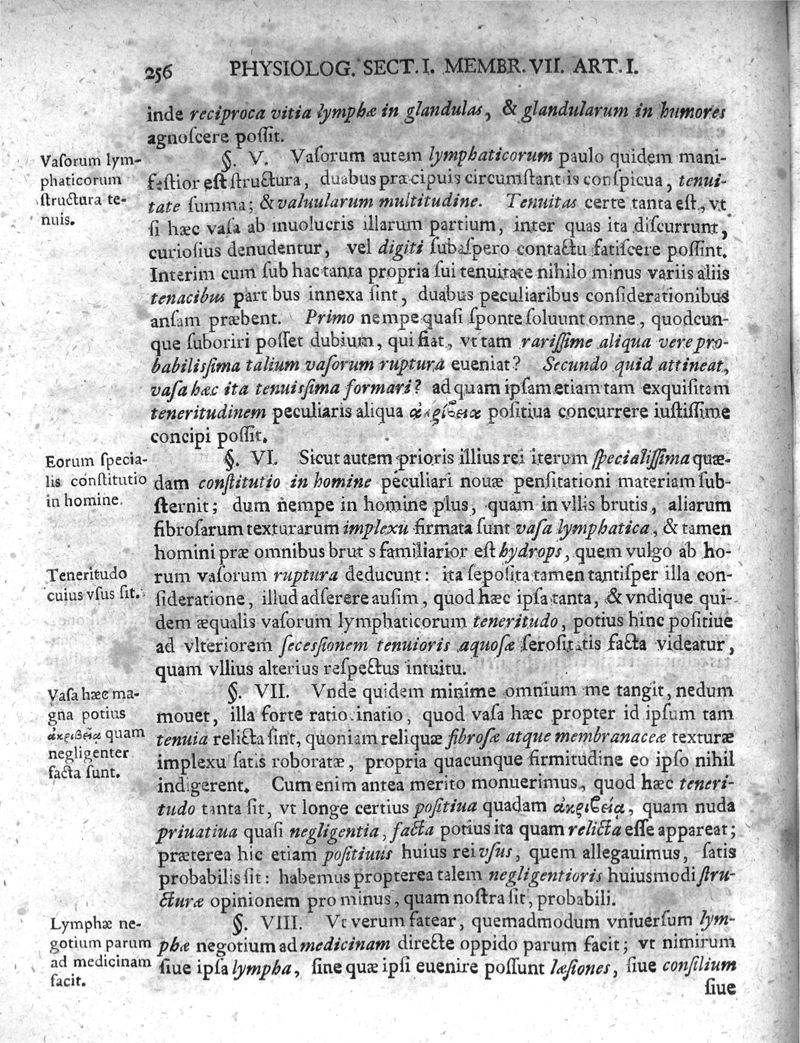 256 PHYSIOLOG. SECT. I. MEMBR. VII. ART. I.
inde reciproca vitia lymphæ in glandulas, & glandularum in humores
agnoſcere poſſit.
Vaſorum lym-
phaticorum
ſtructura te-
nuis.
§. V. Vaſorum autem lymphaticorum paulo quidem mani-
feſtior eſt ſtructura, duabus præcipuis circumſtantiis conſpicua, tenui-
tate ſumma; & valuularum multitudine. Tenuitas certe tanta eſt, vt
ſi hæc vaſa ab inuolucris illarum partium, inter quas ita diſcurrunt,
curioſius denudentur, vel digiti ſubaſpero contactu fatiſcere poſſint.
Interim cum ſub hac tanta propria ſui tenuitate nihilo minus variis aliis
tenacibus part bus innexa ſint, duabus peculiaribus conſiderationibus
anſam præbent. Primo nempe quaſi ſponte ſoluunt omne, quodcun-
que ſuboriri poſſet dubium, qui fiat, vt tam rariſſime aliqua vere pro-
babiliſſima talium vaſorum ruptura eueniat? Secundo quid attineat,
vaſa hæc ita tenuiſſima formari? ad quam ipſam etiam tam exquiſitam
teneritudinem peculiaris aliqua ἀκρίβεια poſitiua concurrere iuſtiſſime
concipi poſſit.
Eorum ſpecia-
lis conſtitutio
in homine.
§. VI. Sicut autem prioris illius rei iterum ſpecialiſſima quæ-
dam conſtitutio in homine peculiari nouæ penſitationi materiam ſub-
ſternit; dum nempe in homine plus, quam in vllis brutis, aliarum
fibroſarum texturarum implexu firmata ſunt vaſa lymphatica, & tamen
homini præ omnibus brut s familiarior eſt hydrops, quem vulgo ab ho-
Teneritudo
cuius vſus ſit.
rum vaſorum ruptura deducunt: ita ſepoſita tamen tantiſper illa con-
ſideratione, illud adſerere auſim, quod hæc ipſa tanta, & vndique qui-
dem æqualis vaſorum lymphaticorum teneritudo, potius hinc poſitiue
ad vlteriorem ſeceſſionem tenuioris aquoſæ ſeroſitatis facta videatur,
quam vllius alterius reſpectus intuitu.
Vaſa hæc ma-
gna potius
ἀκριβείᾳ quam
negligenter
facta ſunt.
§. VII. Vnde quidem minime omnium me tangit, nedum
mouet, illa forte ratiocinatio, quod vaſa hæc propter id ipſum tam
tenuia relicta ſint, quoniam reliquæ fibroſæ atque membranaceæ texturæ
implexu ſatis roboratæ, propria quacunque firmitudine eo ipſo nihil
indigerent. Cum enim antea merito monuerimus, quod hæc teneri-
tudo tanta ſit, vt longe certius poſitiua quadam ἀκριβείᾳ, quam nuda
priuatiua quaſi negligentia, facta potius ita quam relicta eſſe appareat;
præterea hic etiam poſitiuus huius rei vſus, quem allegauimus, ſatis
probabilis ſit: habemus propterea talem negligentioris huiusmodi ſtru-
cturæ opinionem pro minus, quam noſtra ſit, probabili.
Lymphæ ne-
gotium parum
ad medicinam
facit.
§. VIII. Vt verum fatear, quemadmodum vniuerſum lym-
phæ negotium ad medicinam directe oppido parum facit; vt nimirum
ſiue ipſa lympha, ſine quæ ipſi euenire poſſunt læſiones, ſiue conſilium
ſiue